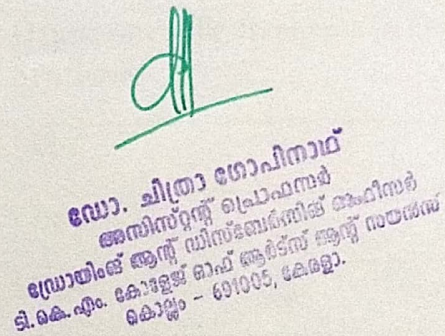 ഡോ. ചിത്രാ ഗോപിനാഥ്
അസിസ്റ്റന്റ് പ്രൊഫസർ
ഡ്രോയിംങ് ആന്റ് ഡിസ്ബേർസിങ് ആഫീസർ
ടി.കെ.എം. കോളേജ് ഓഫ് ആർട്സ് ആന്റ് സയൻസ്
കൊല്ലം - 691005, കേരളാ.